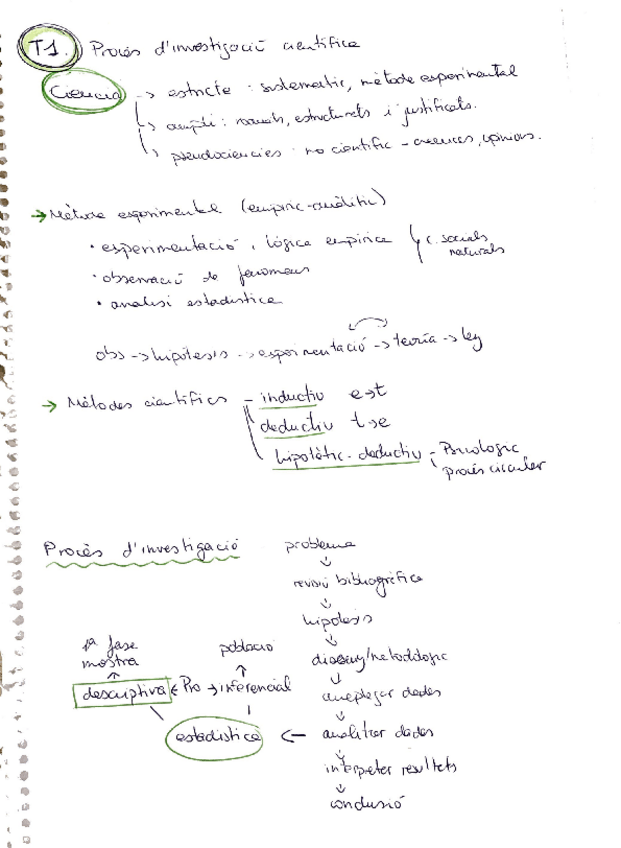 T1. Procés d'investigació científica
Ciencia -> estricte : sistematic, mètode experimental
-> ampli : raonats, estructurats i justificats.
-> pseudociencies : no científic - creences, opinions.
-> Mètode experimental (empiric-analític)
• experimentació i lógica empírica
c. socials
naturals
• observació de fenomens
• analisi estadistica
obs -> hipótesis -> experimentació -> teoría -> ley
-> Métodes científics - inductiu e->t
deductiu t->e
hipotètic-deductiu - Psicologic
procés circular
Procès d'investigació
problema
revisió bibliogràfica
hipótesis
disseny/metodologic
arreplegar dades
analitzar dades
interpretar resultats
conclusió
1ª fase
mostra
població
descriptiva <- Pro -> inferencial
estadística <-